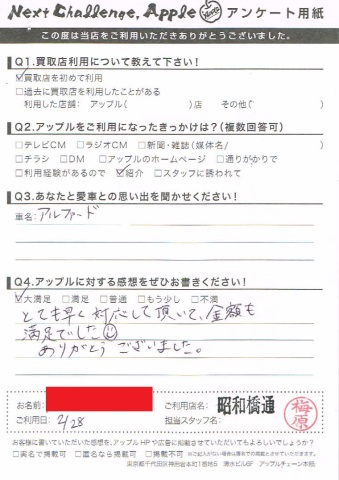 Next Challenge, Apple アンケート用紙
この度は当店をご利用いただきありがとうございました。
Q1.買取店利用について教えて下さい!
☑買取店を初めて利用
□過去に買取店を利用したことがある
利用した店舗: アップル( )店 その他( )
Q2.アップルをご利用になったきっかけは?(複数回答可)
□テレビCM □ラジオCM □新聞・雑誌(媒体名/ )
□チラシ □DM □アップルのホームページ □通りがかりで
□利用経験があるので ☑紹介 □スタッフに誘われて
Q3.あなたと愛車との思い出を聞かせください!
車名: アルファード
Q4.アップルに対する感想をぜひお書きください!
☑大満足 □満足 □普通 □もう少し □不満
とても早く対応して頂いて、金額も
満足でした
ありがとうございました。
お名前: ご利用店名: 昭和橋通
ご利用日: 2/28 担当スタッフ名: 梅原
お客様に書いていただいた感想を、アップルHPや広告に掲載させていただいてもよろしいでしょうか?
□実名で掲載可 □匿名なら掲載可 □掲載不可 ※ご記入がない場合は匿名での掲載とさせていただきます。
東京都千代田区神田省本町1番地5 清水ビル6F アップルチェーン本部